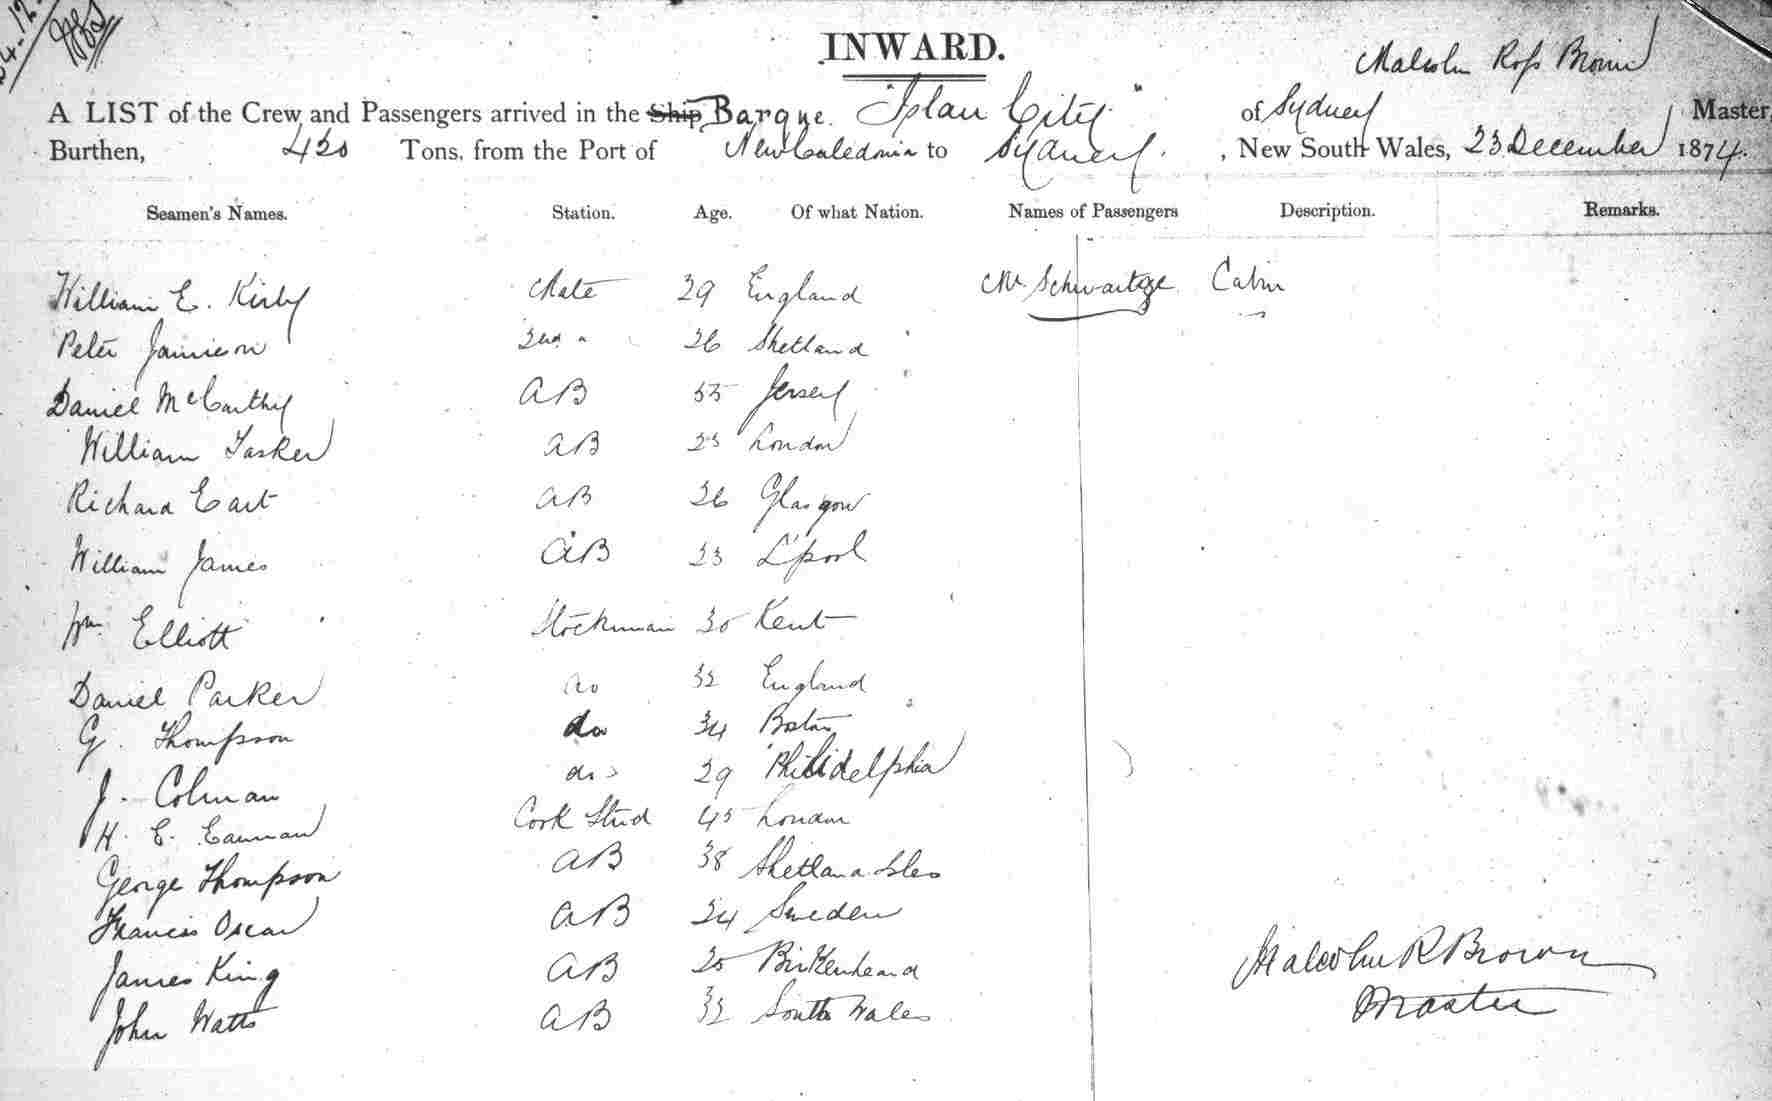 INWARD.
Malcolm Ross Brown
A LIST of the Crew and Passengers arrived in the Ship Barque "Islan City" of Sydney Master,
Burthen, 420 Tons, from the Port of New Caledonia to Sydney. , New South Wales, 23 December 1874.
Seamen's Names. Station. Age. Of what Nation. Names of Passengers Description. Remarks.
William E. Kirby Mate 29 England Mr. Schwartze Cabin
Peter Jamieson 2nd " 26 Shetland
Daniel McCarthy AB Jersey
William Tasker AB 23 London
Richard East AB 26 Glasgow
William James AB 23 L'pool
Wm Elliott Stockman 30 Kent
Daniel Parker do 32 England
G. Thompson do 34 Boston
J. Colman do 29 Philidelphia
H. E. Cook Stud 45 London
George Thompson AB 38 Shetland Isles
Francis Oscar AB 24 Sweden
James King AB 20 Birkenhead
John Watts AB 32 South Wales
Malcolm R Brown
Master